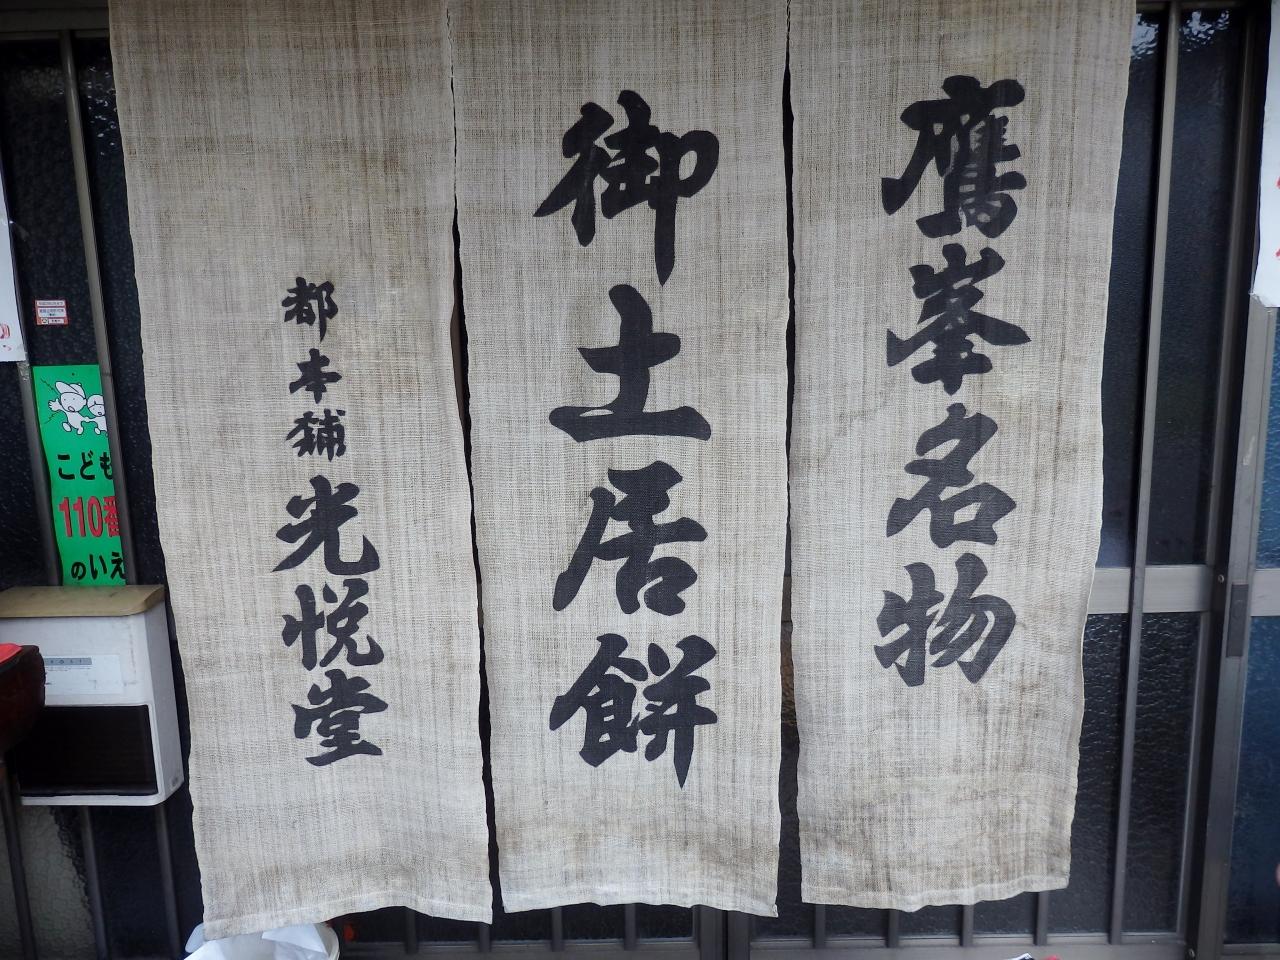 鷹峯名物
御土居餅
都本舗 光悦堂
こども
110番
のいえ